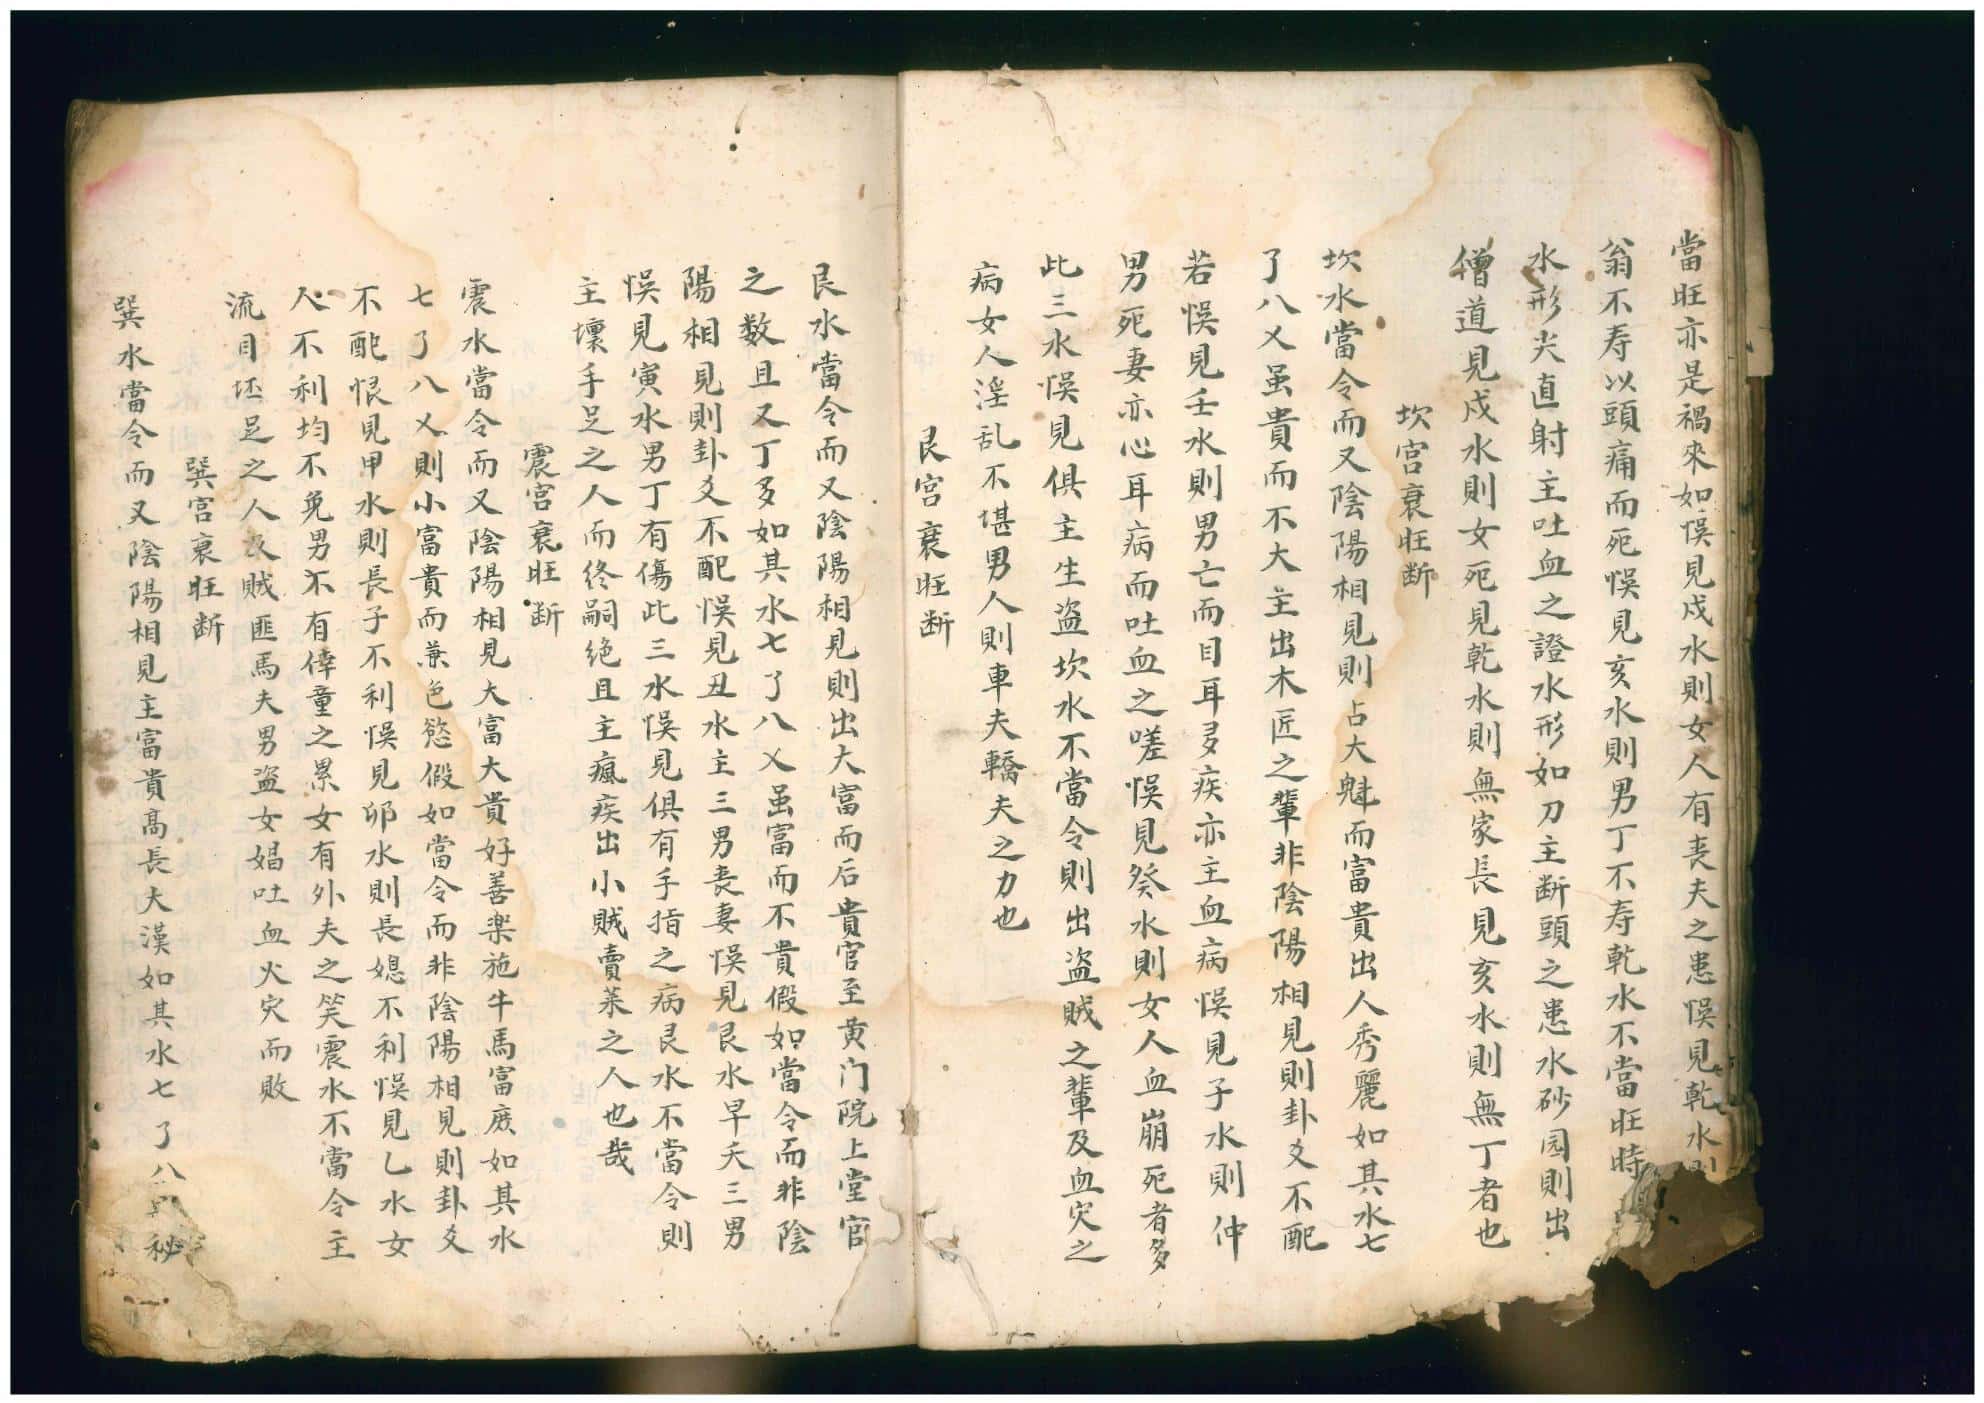 當旺亦是禍來如悮見戍水則女人有丧夫之患悮見乾水則
翁不寿以頭痛而死悮見亥水則男丁不寿乾水不當旺時
水形尖直射主吐血之證水形如刀主断頭之患水砂园則出
僧道見戍水則女死見乾水則無家長見亥水則無丁者也
坎宫衰旺断
坎水當令而又陰陽相見則占大魁而富貴出人秀麗如其水七
了八乂虽貴而不大主出木匠之輩非陰陽相見則卦爻不配
若悮見壬水則男亡而目耳多疾亦主血病悮見子水則仲
男死妻亦心耳病而吐血之嗟悮見癸水則女人血崩死者多
此三水悮見俱主生盗坎水不當令則出盗贼之輩及血灾之
病女人淫乱不堪男人則車夫轎夫之力也
艮宫衰旺断
艮水當令而又陰陽相見則出大富而后貴官至黄门院上堂官
之数且又丁多如其水七了八乂虽富而不貴假如當令而非陰
陽相見則卦爻不配悮見丑水主三男丧妻悮見艮水早夭三男
悮見寅水男丁有傷此三水悮見俱有手指之病艮水不當令則
主壞手足之人而终嗣绝且主瘋疾出小贼賣菜之人也哉
震宫衰旺断
震水當令而又陰陽相見大富大貴好善楽施牛馬富庶如其水
七了八乂則小富貴而兼色慾假如當令而非陰陽相見則卦爻
不配悮見甲水則長子不利悮見卯水則長媳不利悮見乙水女
人不利均不免男不有俥童之累女有外夫之笑震水不當令主
流目坯足之人及贼匪馬夫男盗女娼吐血火灾而败
巽宫衰旺断
巽水當令而又陰陽相見主富貴髙長大漢如其水七了八秘